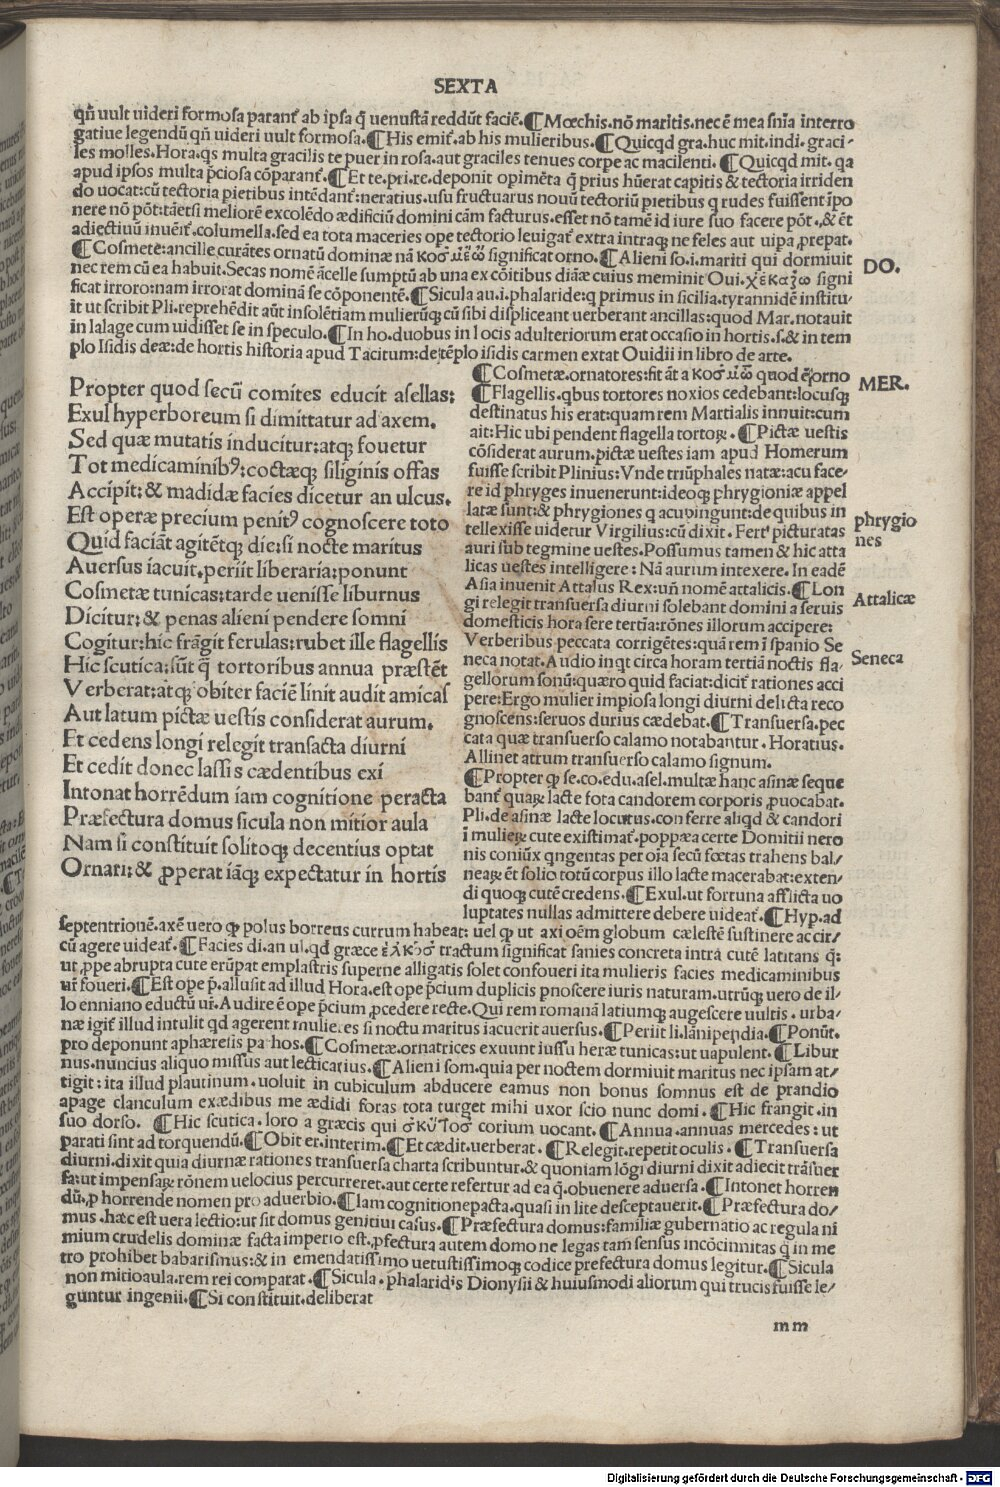 SEXTA
qñ uult uideri formosa parant᷑ ab ipsa q̃ uenustā reddūt faciē.¶Mœchis.nō maritis.nec ē mea sñia interro
gatiue legendū qñ uideri uult formosa.¶His emit᷑.ab his mulieribus.¶Quicqd gra.huc mit.indi.graci-
les molles.Hora.qs multa gracilis te puer in rosa.aut graciles tenues corpe ac macilenti.¶Quicqd mit.qa
apud ipsos multa p̄ciosa cōparant᷑.¶Et te.pri.re.deponit opimēta q̃ prius hūerat capitis & tectoria irriden
do uocat:cū tectoria pietibus intēdant᷑:neratius.usu fructuarus nouū tectoriū pietibus q rudes fuissent īpo
nere nō pōt:tāetsi meliorē excolēdo ædificiū domini cām facturus.esset nō tamē id iure suo facere pōt.& ēt
adiectiuū inuēit᷑.columella.sed ea tota maceries ope tectorio leuigat᷑ extra intraqꝫ ne feles aut uipa ꝓrepat.
¶Cosmete:ancille curātes ornatū dominæ nā κοσμέω significat orno.¶Alieni so.i.mariti qui dormiuit
nec rem cū ea habuit.Secas nomē ācelle sumptū ab una ex cōitibus diāæ cuius meminit Oui.χἑκαζω signi
ficat irroro:nam irrorat dominā se cōponentē.¶Sicula au.i.phalaride:q primus in sicilia.tyrannidē institu-
it ut scribit Pli.reprehēdit aūt insolētiam mulierūqꝫ cū sibi displiceant uerberant ancillas:quod Mar.notauit
in lalage cum uidisset se in speculo.¶In ho.duobus in locis adulteriorum erat occasio in hortis.s.& in tem
plo Isidis deæ:de hortis historia apud Tacitum:de tēplo isidis carmen extat Ouidii in libro de arte.
DO.
Propter quod secū comites educit asellas:
Exul hyperboreum si dimittatur ad axem.
Sed quæ mutatis inducitur:atqꝫ fouetur
Tot medicaminibꝰ:coctæqꝫ siliginis offas
Accipit:& madidæ facies dicetur an ulcus.
Est operæ precium penitꝰ cognoscere toto
Quid faciāt agitētqꝫ die:si nocte maritus
Auersus iacuit.periit liberaria:ponunt
Cosmetæ tunicas:tarde uenisse liburnus
Dicitur:& penas alieni pendere somni
Cogitur:hic frāgit ferulas:rubet ille flagellis
Hic scutica:sūt q̃ tortoribus annua præstēt
Verberat:atqꝫ obiter faciē linit audit amicas
Aut latum pictæ uestis considerat aurum.
Et cedens longi relegit transacta diurni
Et cedit donec lassis cædentibus exi
Intonat horrēdum iam cognitione peracta
Præfectura domus sicula non mitior aula
Nam si constituit solitoqꝫ decentius optat
Ornari:& ꝓperat iāqꝫ expectatur in hortis
¶Cosmetæ.ornatores:fit āt a κοσμῶ quod ē orno
¶Flagellis.qbus tortores noxios cedebant:locusqꝫ
destinatus his erat:quam rem Martialis innuit:cum
ait:Hic ubi pendent flagella tortoꝝ.¶Pictæ uestis
cōsiderat aurum.pictæ uestes iam apud Homerum
fuisse scribit Plinius:Vnde triūphales natæ:acu face-
re id phryges inuenerunt:ideoqꝫ phrygioniæ appel
latæ sunt:& phrygiones q acu pingunt:de quibus in
tellexisse uidetur Virgilius:cū dixit.Fert᷑ picturatas
auri sub tegmine uestes.Possumus tamen & hic atta
licas uestes intelligere:Nā aurum intexere.In eadē
Asia inuenit Attalus Rex:uñ nomē attalicis.¶Lon
gi relegit transuersa diurni solebant domini a seruis
domesticis hora fere tertia:rōnes illorum accipere:
Verberibus peccata corrigētes:quā rem ī spanio Se
neca notat.Audio inqt circa horam tertiā noctis fla-
gellorum sonū:quæro quid faciat:dicit᷑ rationes acci
pere:Ergo mulier impiosa longi diurni delicta reco
gnoscens:seruos durius cædebat.¶Transuersa.pec
cata quæ transuerso calamo notabantur.Horatius.
Allinet atrum transuerso calamo signum.
¶Propter qꝫ se.co.edu.asel.multæ hanc asinæ seque
bant᷑ quaꝝ lacte fota candorem corporis ꝓuocabat.
Pli.de asinæ lacte locutus.conferre aliqd & candori
ī mulieꝝ cute existimat᷑.poppæa certe Domitii nero
nis coniūx qngentas per oīa secū fœtas trahens bal-
neaꝝ ēt solio totū corpus illo lacte macerabat:exten-
di quoqꝫ cutē credens.¶Exul.ut fortuna afflicta uo
luptates nullas admittere debere uideat᷑.¶Hyp.ad
MER.
phrygio
nes
Attalicæ
Seneca
septentrionē.axē uero qꝫ polus borreus currum habeat: uel qꝫ ut axi oēm globum cælestē sustinere ac cir-
cū agere uideat᷑.¶Facies di.an ul.qd græce ἑλκὸσ tractum significat sanies concreta intra cutē latitans q̃:
ut ꝓpe abrupta cute erūpat emplastris superne alligatis solet confoueri ita mulieris facies medicaminibus
ur᷑ foueri.¶Est ope p̄.allusit ad illud Hora.est ope p̄cium duplicis pnoscere iuris naturam.utrūqꝫ uero de il-
lo enniano eductū ur᷑.Audire ē ope p̄cium ꝓcedere recte.Qui rem romanā latiumqꝫ augescere uultis.urba-
næ igit᷑ illud intulit qd agerent mulieres si noctu maritus iacuerit auersus.¶Periit li.lānipendia.¶Ponūt.
pro deponunt aphæresis pathos.¶Cosmetæ.ornatrices exuunt iussu heræ tunicas:ut uapulent.¶Libur
nus.nuncius aliquo missus aut lecticarius.¶Alieni som.quia per noctem dormiuit maritus nec ipsam at-
tigit:ita illud plautinum.uoluit in cubiculum abducere eamus non bonus somnus est de prandio
apage clanculum exædibus me ædidi foras tota turget mihi uxor scio nunc domi.¶Hic frangit.in
suo dorso. ¶Hic scutica.loro a græcis qui σκῦτοσ corium uocant.¶Annua.annuas mercedes:ut
parati sint ad torquendū.¶Obiter.interim.¶Et cædit.uerberat.¶Relegit.repetit oculis.¶Transuersa
diurni.dixit quia diurnæ rationes transuersa charta scribuntur.& quoniam lōgi diurni dixit adiecit trāsuer
sa:ut impensaꝝ rōnem uelocius percurreret.aut certe refertur ad ea q̃.obuenere aduersa.¶Intonet horren
dū.ꝓ horrende nomen pro aduerbio.¶Iam cognitione pacta.quasi in lite desceptauerit.¶Præfectura do-
mus.hæc est uera lectio:ut sit domus genitiui casus.¶Præfectura domus:familiæ gubernatio ac regula ni
mium crudelis dominæ facta imperio est.ꝓfectura autem domo ne legas tam sensus incōcinnitas q̃ in me
tro prohibet babarismus:& in emendatissimo uetustissimoqꝫ codice prefectura domus legitur.¶Sicula
non mitio aula.rem rei comparat.¶Sicula.phalaridis Dionysii & huiusmodi aliorum qui trucis fuisse le-
guntur ingenii.¶Si constituit.deliberat
mm
Digitalisierung gefördert durch die Deutsche Forschungsgemeinschaft - DFG